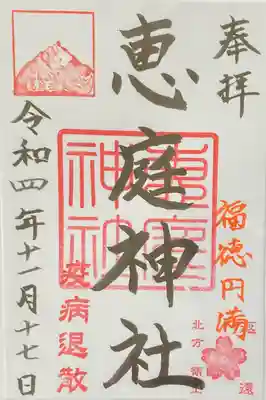 奉拝
福徳円満
北方領土
恵庭神社
恵庭
神社
疫病退散
令和四年十一月十七日